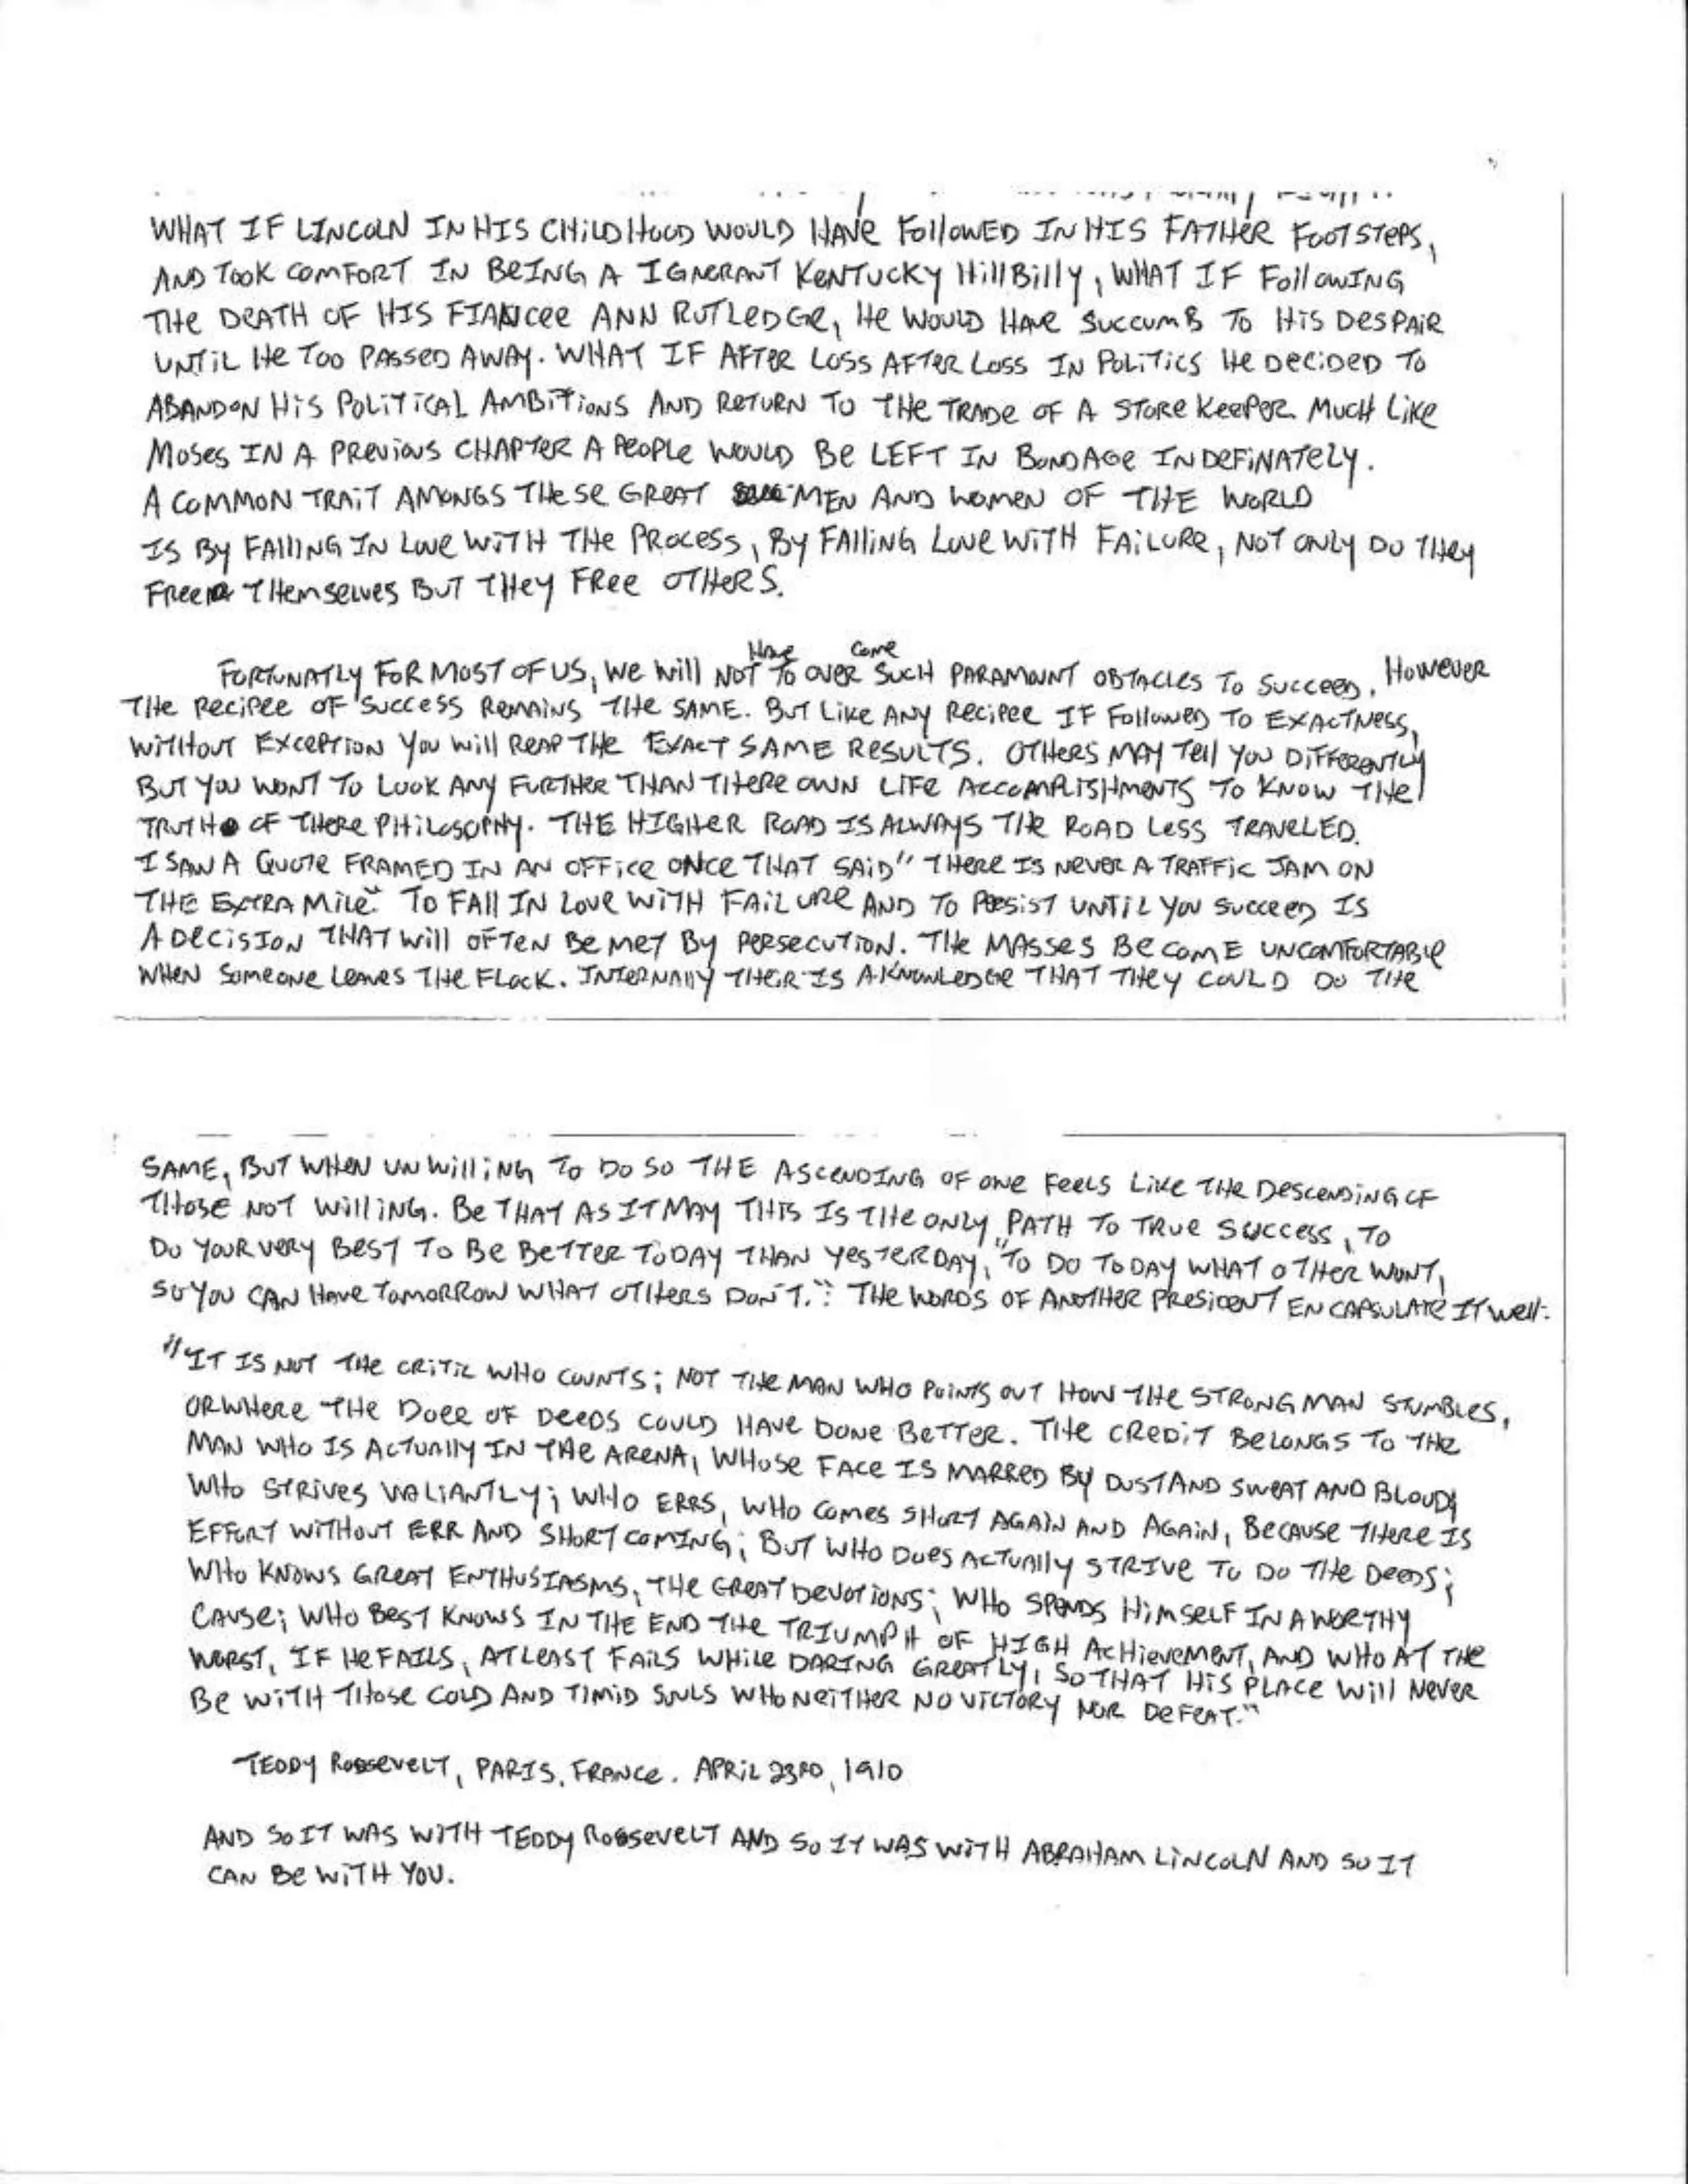 WHAT IF LINCOLN IN HIS CHILDHOOD WOULD HAVE FOLLOWED IN HIS FATHER FOOTSTEPS,
AND TOOK COMFORT IN BEING A IGNERANT KENTUCKY HILLBILLY, WHAT IF FOLLOWING
THE DEATH OF HIS FIANCEE ANN RUTLEDGE, HE WOULD HAVE SUCCUMB TO HIS DESPAIR
UNTIL HE TOO PASSED AWAY. WHAT IF AFTER LOSS AFTER LOSS IN POLITICS HE DECIDED TO
ABANDON HIS POLITICAL AMBITIONS AND RETURN TO THE TRADE OF A STORE KEEPER. MUCH LIKE
MOSES IN A PREVIOUS CHAPTER A PEOPLE WOULD BE LEFT IN BONDAGE INDEFINATELY.
A COMMON TRAIT AMONGS THESE GREAT MEN AND WOMEN OF THE WORLD
IS BY FALLING IN LOVE WITH THE PROCESS, BY FALLING LOVE WITH FAILURE, NOT ONLY DO THEY
FREE THEMSELVES BUT THEY FREE OTHERS.
FORTUNATLY FOR MOST OF US, WE WILL NOT HAVE TO OVER COME SUCH PARAMOUNT OBTACLES TO SUCCEED. HOWEVER
THE RECIPEE OF SUCCESS REMAINS THE SAME. BUT LIKE ANY RECIPEE IF FOLLOWED TO EXACTNESS,
WITHOUT EXCEPTION YOU WILL REAP THE EXACT SAME RESULTS. OTHERS MAY TELL YOU DIFFERENTLY
BUT YOU WONT TO LOOK ANY FURTHER THAN THERE OWN LIFE ACCOMPLISHMENTS TO KNOW THE
TRUTH OF THERE PHILOSOPHY. THE HIGHER ROAD IS ALWAYS THE ROAD LESS TRAVELED.
I SAW A QUOTE FRAMED IN AN OFFICE ONCE THAT SAID "THERE IS NEVER A TRAFFIC JAM ON
THE EXTRA MILE." TO FALL IN LOVE WITH FAILURE AND TO PRESIST UNTIL YOU SUCCEED IS
A DECISION THAT WILL OFTEN BE MET BY PERSECUTION. THE MASSES BECOME UNCOMFORTABLE
WHEN SOMEONE LEAVES THE FLOCK. INTERNALLY THEIR IS A KNOWLEDGE THAT THEY COULD DO THE
SAME, BUT WHEN UNWILLING TO DO SO THE ASCENDING OF ONE FEELS LIKE THE DESCENDING OF
THOSE NOT WILLING. BE THAT AS IT MAY THIS IS THE ONLY PATH TO TRUE SUCCESS, TO
DO YOUR VERY BEST TO BE BETTER TODAY THAN YESTERDAY, "TO DO TODAY WHAT OTHER WONT,
SO YOU CAN HAVE TOMORROW WHAT OTHERS DON'T." THE WORDS OF ANOTHER PRESIDENT ENCAPSULATE IT WELL:
"IT IS NOT THE CRITIC WHO COUNTS; NOT THE MAN WHO POINTS OUT HOW THE STRONG MAN STUMBLES,
OR WHERE THE DOER OF DEEDS COULD HAVE DONE BETTER. THE CREDIT BELONGS TO THE
MAN WHO IS ACTUALLY IN THE ARENA, WHOSE FACE IS MARRED BY DUST AND SWEAT AND BLOOD;
WHO STRIVES VALIANTLY; WHO ERRS, WHO COMES SHORT AGAIN AND AGAIN, BECAUSE THERE IS
EFFORT WITHOUT ERR AND SHORTCOMING; BUT WHO DOES ACTUALLY STRIVE TO DO THE DEEDS;
WHO KNOWS GREAT ENTHUSIASMS, THE GREAT DEVOTIONS; WHO SPENDS HIMSELF IN A WORTHY
CAUSE; WHO BEST KNOWS IN THE END THE TRIUMPH OF HIGH ACHIEVEMENT, AND WHO AT THE
WORST, IF HE FAILS, AT LEAST FAILS WHILE DARING GREATLY, SO THAT HIS PLACE WILL NEVER
BE WITH THOSE COLD AND TIMID SOULS WHO NEITHER NO VICTORY NOR DEFEAT."
TEDDY ROOSEVELT, PARIS, FRANCE. APRIL 23RD, 1910
AND SO IT WAS WITH TEDDY ROOSEVELT AND SO IT WAS WITH ABRAHAM LINCOLN AND SO IT
CAN BE WITH YOU.